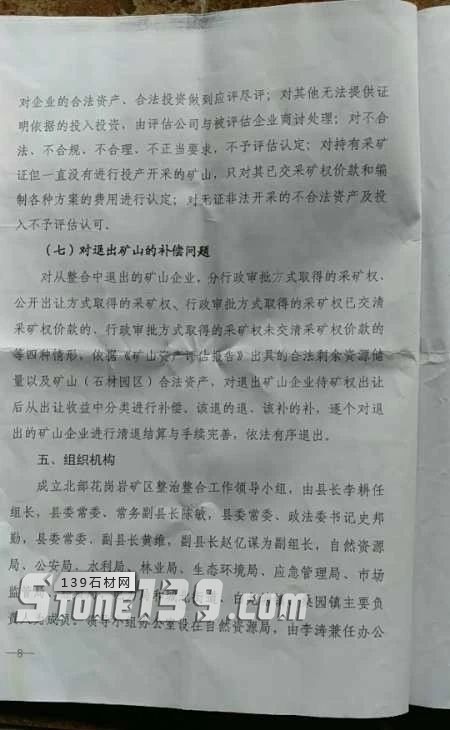 对企业的合法资产、合法投资做到应评尽评；对其他无法提供证
明依据的投入投资，由评估公司与被评估企业商讨处理；对不合
法、不合规、不合理、不正当要求，不予评估认定；对持有采矿
证但一直没有进行投产开采的矿山，只对其已交采矿权价款和编
制各种方案的费用进行认定；对无证非法开采的不合法资产及投
入不予评估认可。
（七）对退出矿山的补偿问题
对从整合中退出的矿山企业，分行政审批方式取得的采矿权、
公开出让方式取得的采矿权、行政审批方式取得的采矿权已交清
采矿权价款的、行政审批方式取得的采矿权未交清采矿权价款的
等四种情形，依据《矿山资产评估报告》出具的合法剩余资源储
量以及矿山（石材园区）合法资产，对退出矿山企业待矿权出让
后从出让收益中分类进行补偿、该退的退、该补的补，逐个对退
出的矿山企业进行清退结算与手续完善，依法有序退出。
五、组织机构
成立北部花岗岩矿区整治整合工作领导小组，由县长李耕任
组长，县委常委、常务副县长陈敏，县委常委、政法委书记史邦
勤，县委常委、副县长黄维，副县长赵亿谋为副组长，自然资源
局、公安局、水利局、林业局、生态环境局、应急管理局、市场
监管局
139石材网
Stone139.com
桑园镇主要负
责人为成员。领导小组办公室设在自然资源局，由李涛兼任办公
—8—